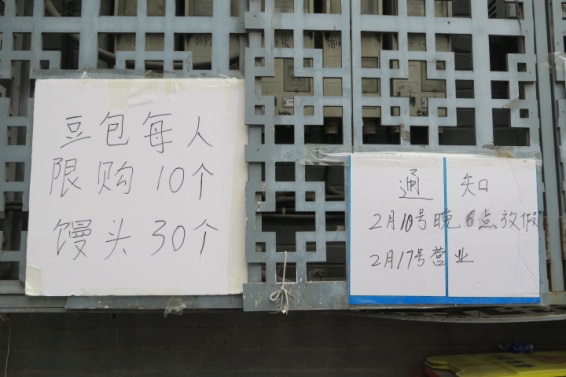 豆包每人
限购10个
馒头30个
通知
2月10号晚6点放假
2月17号营业